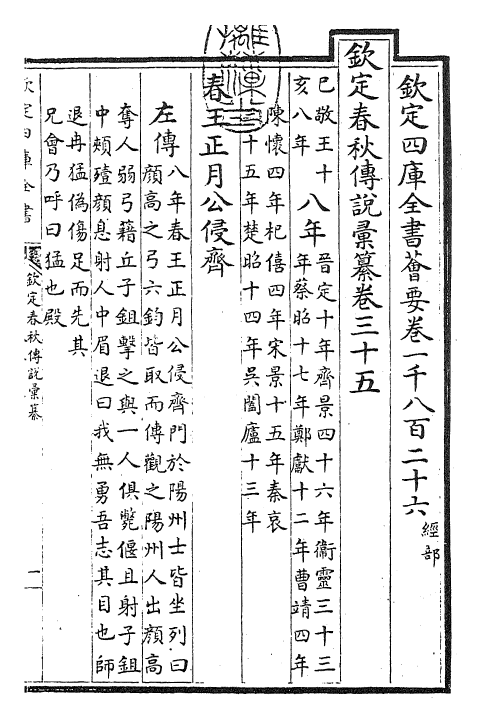 欽定四庫全書薈要卷一千八百二十六 經部
欽定春秋傳說彙纂卷三十五
己敬王十
亥八年
八年
晉定十年齊景四十六年衞靈三十三
年蔡昭十七年鄭獻十二年曹靖四年
陳懷四年杞僖四年宋景十五年秦哀
三十五年楚昭十四年吳闔廬十三年
春王正月公侵齊
左傳八年春王正月公侵齊門於陽州士皆坐列曰
顔高之弓六鈞皆取而傳觀之陽州人出顔高
奪人弱弓籍丘子鉏擊之與一人俱斃偃且射子鉏
中頰殪顔息射人中眉退曰我無勇吾志其目也師
退冉猛偽傷足而先其
兄會乃呼曰猛也殿
欽定四庫全書
欽定春秋傳說彙纂
一